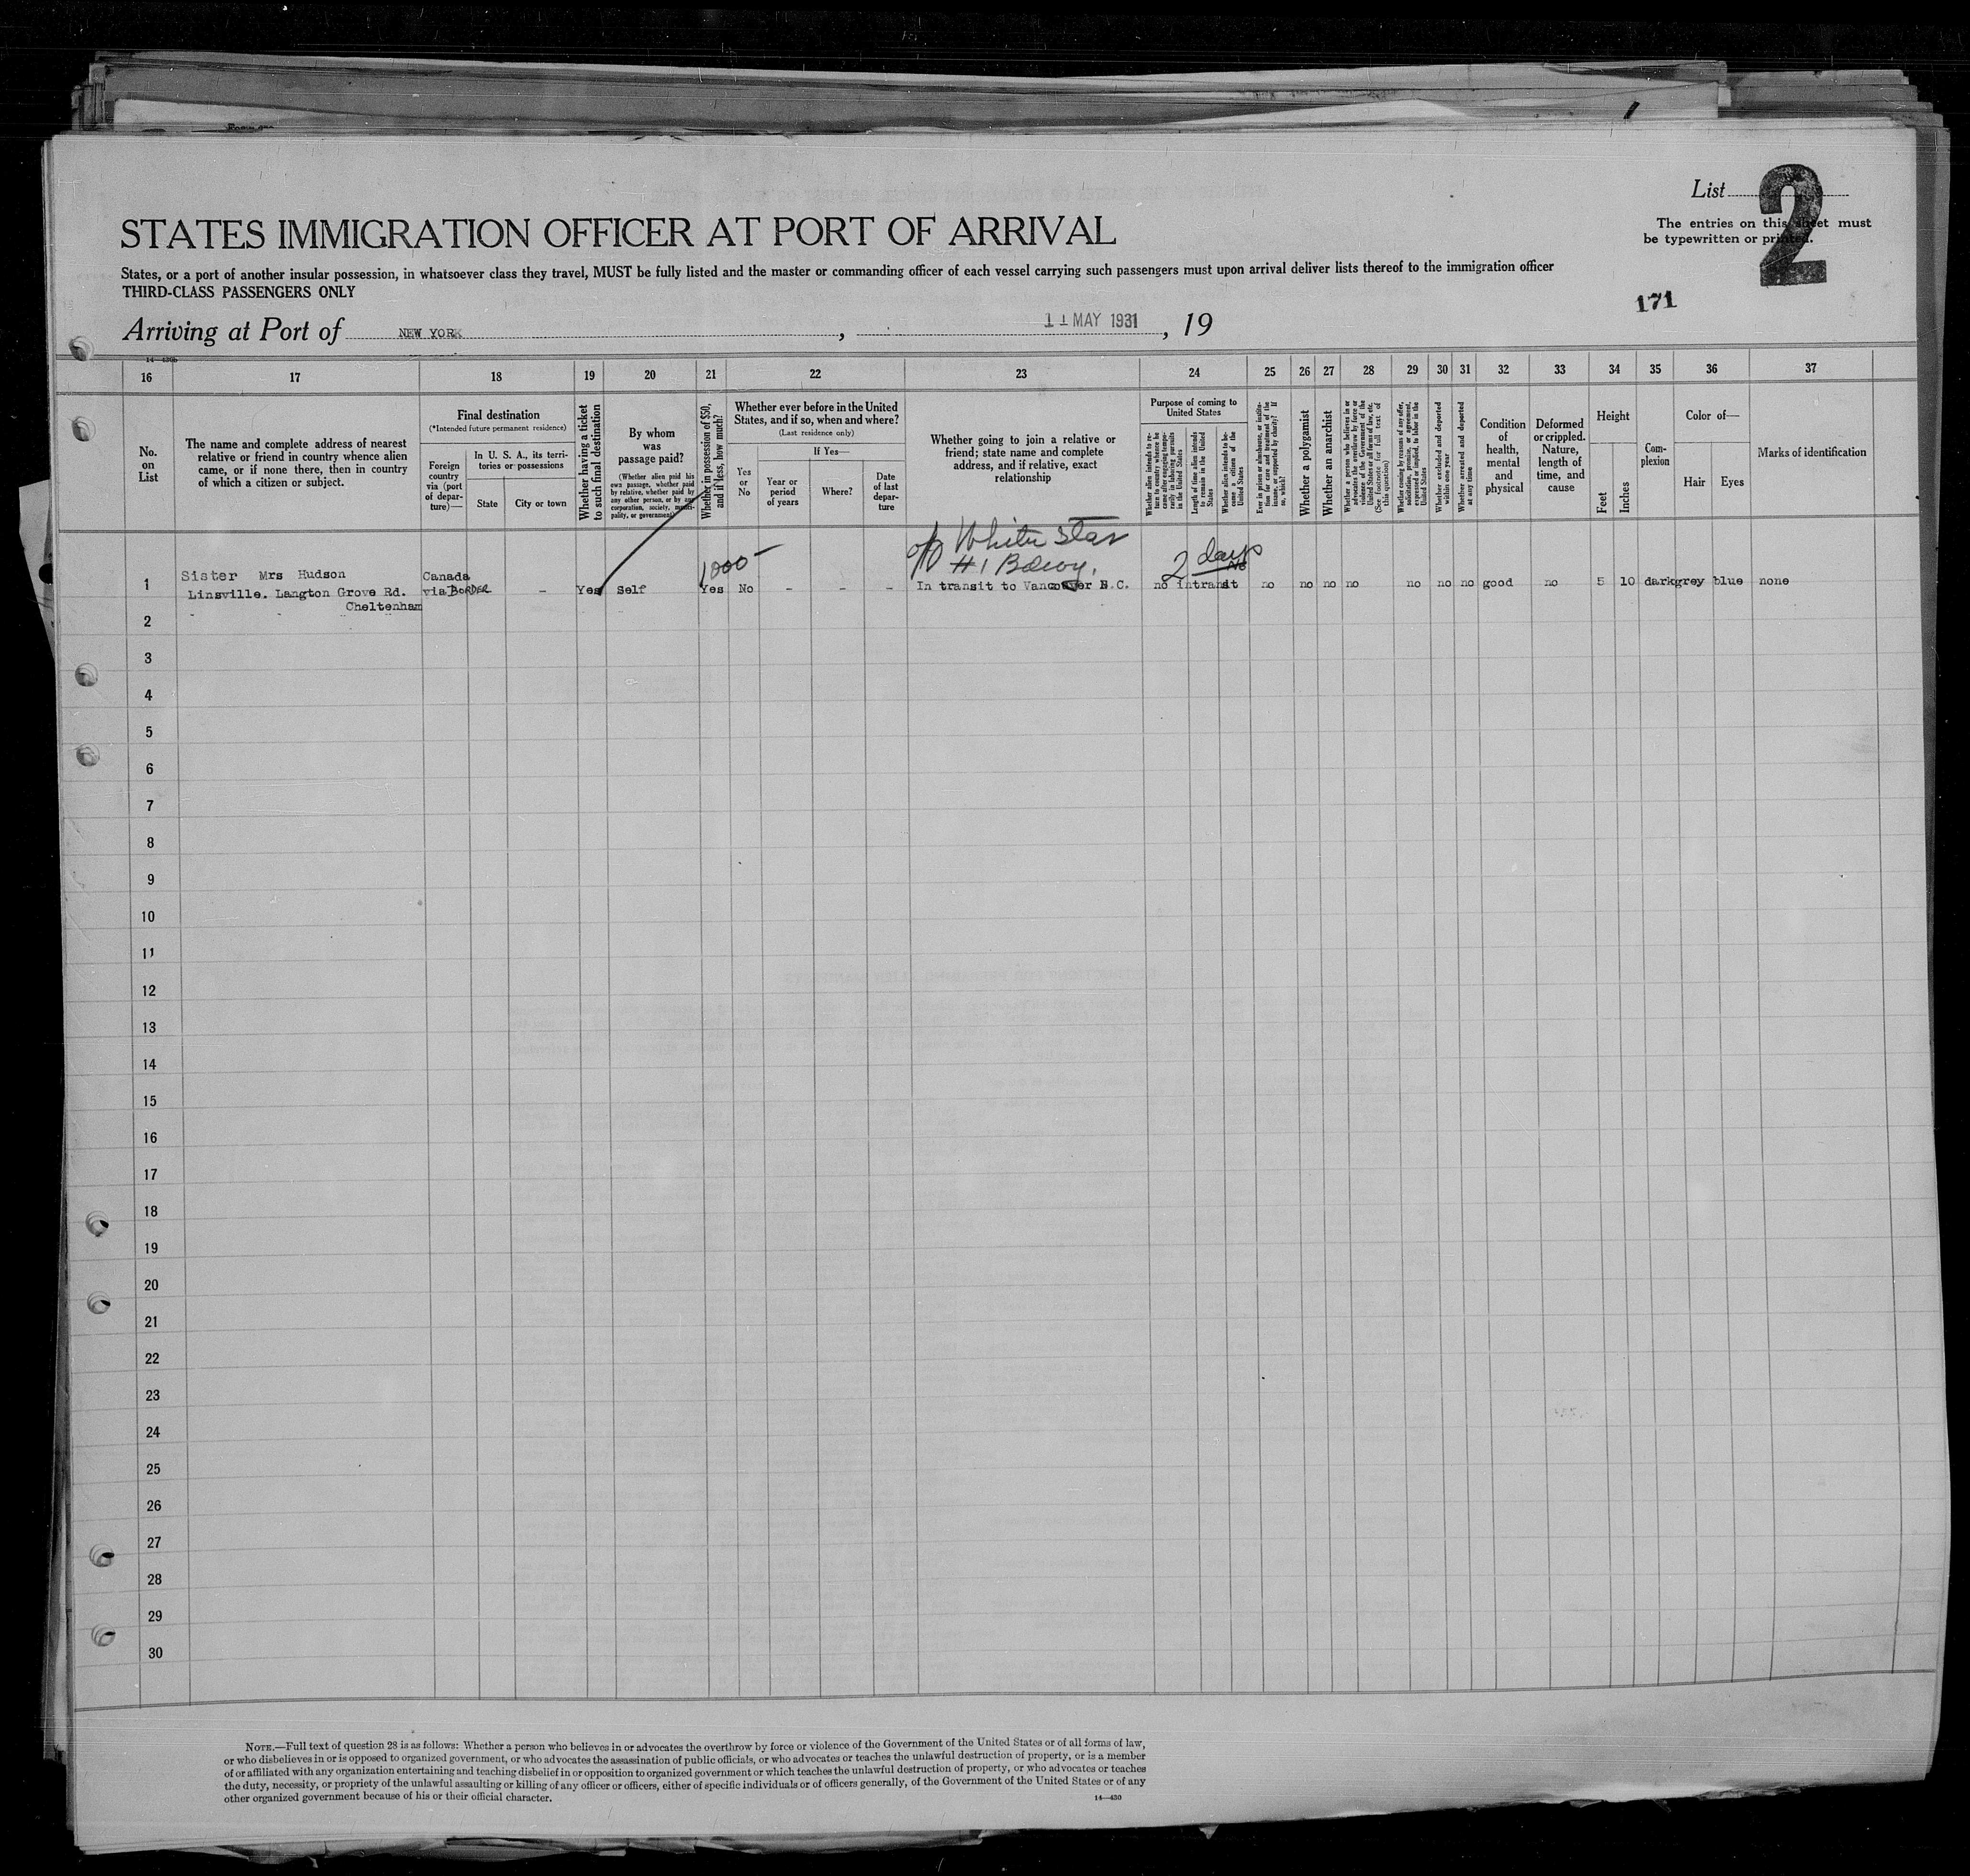 List
2
The entries on this sheet must
be typewritten or printed.
STATES IMMIGRATION OFFICER AT PORT OF ARRIVAL
States, or a port of another insular possession, in whatsoever class they travel, MUST be fully listed and the master or commanding officer of each vessel carrying such passengers must upon arrival deliver lists thereof to the immigration officer
THIRD-CLASS PASSENGERS ONLY
171
Arriving at Port of NEW YORK, 11 MAY 1931, 19
16 17 18 19 20 21 22 23 24 25 26 27 28 29 30 31 32 33 34 35 36 37
No.
on
List
The name and complete address of nearest
relative or friend in country whence alien
came, or if none there, then in country
of which a citizen or subject.
Final destination
(*Intended future permanent residence)
Foreign
country
via (port
of depar-
ture)—
In U. S. A., its terri-
tories or possessions
State
City or town
Whether having a ticket
to such final destination
By whom
was
passage paid?
(Whether alien paid his
own passage, whether paid
by relative, whether paid by
any other person, or by any
corporation, society, munici-
pality, or government)
Whether in possession of $50,
and if less, how much?
Whether ever before in the United
States, and if so, when and where?
(Last residence only)
Yes
or
No
If Yes—
Year or
period
of years
Where?
Date
of last
depar-
ture
Whether going to join a relative or
friend; state name and complete
address, and if relative, exact
relationship
Purpose of coming to
United States
Whether alien intends to re-
turn to country whence he
came after engaging tempo-
rarily in laboring pursuits
in the United States
Length of time alien intends
to remain in the United
States
Whether alien intends to be-
come a citizen of the
United States
Ever in prison or almshouse, or institu-
tion for care and treatment of the
insane, or supported by charity? If
so, which?
Whether a polygamist
Whether an anarchist
Whether a person who believes in or
advocates the overthrow by force or
violence of the Government of the
United States or all forms of law, etc.
(See footnote for full text of
this question)
Whether coming by reasons of any offer,
solicitation, promise, or agreement,
expressed or implied, to labor in the
United States
Whether excluded and deported
within one year
Whether arrested and deported
at any time
Condition
of
health,
mental
and
physical
Deformed
or crippled.
Nature,
length of
time, and
cause
Height
Feet
Inches
Com-
plexion
Color of—
Hair
Eyes
Marks of identification
c/o White Star
#1 Bdwy.
1000-
2 days
1 Sister Mrs Hudson
Linsville. Langton Grove Rd.
Cheltenham
Canada
via BORDER
- Yes Self Yes No - - - In transit to Vancouver B.C. no intransit No no no no no no no no good no 5 10 dark grey blue none
2
3
4
5
6
7
8
9
10
11
12
13
14
15
16
17
18
19
20
21
22
23
24
25
26
27
28
29
30
NOTE.—Full text of question 28 is as follows: Whether a person who believes in or advocates the overthrow by force or violence of the Government of the United States or of all forms of law,
or who disbelieves in or is opposed to organized government, or who advocates the assassination of public officials, or who advocates or teaches the unlawful destruction of property, or is a member
of or affiliated with any organization entertaining and teaching disbelief in or opposition to organized government or which teaches the unlawful destruction of property, or who advocates or teaches
the duty, necessity, or propriety of the unlawful assaulting or killing of any officer or officers, either of specific individuals or of officers generally, of the Government of the United States or of any
other organized government because of his or their official character.
14—430